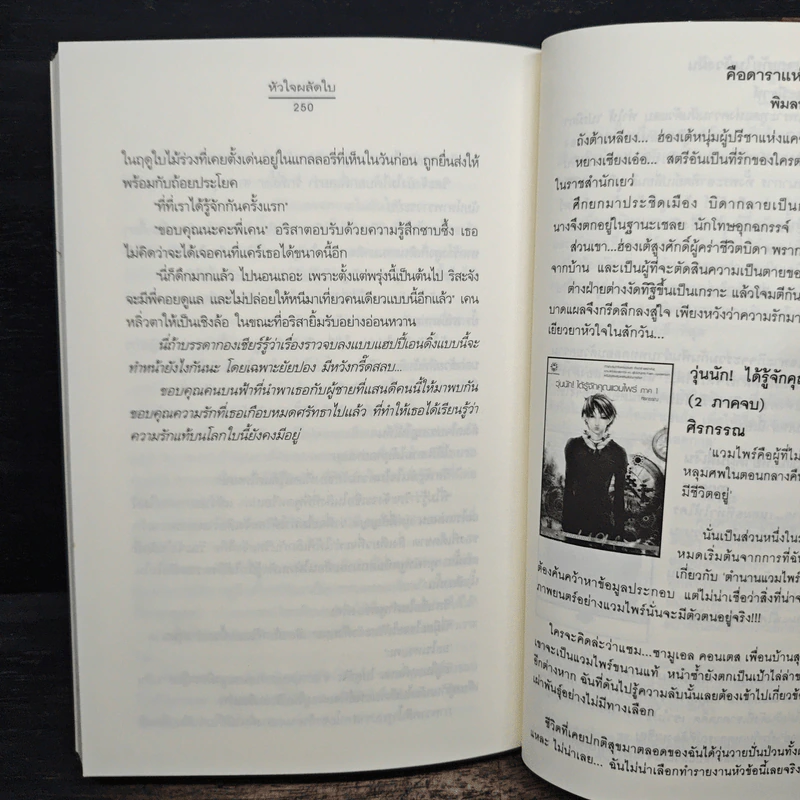 หัวใจผลัดใบ
250
ในฤดูใบไม้ร่วงที่เคยตั้งเด่นอยู่ในแกลลอรี่ที่เห็นในวันก่อน ถูกยื่นส่งให้
พร้อมกับถ้อยประโยค
'ที่ที่เราได้รู้จักกันครั้งแรก'
'ขอบคุณนะคะพี่เคน' อริสาตอบรับด้วยความรู้สึกซาบซึ้ง เธอ
ไม่คิดว่าจะได้เจอคนที่แคร์เธอได้ขนาดนี้อีก
'นี่ก็ดึกมากแล้ว ไปนอนเถอะ เพราะตั้งแต่พรุ่งนี้เป็นต้นไป ริสะจัง
จะมีพี่คอยดูแล และไม่ปล่อยให้หนีมาเที่ยวคนเดียวแบบนี้อีกแล้ว' เคน
หลิ่วตาให้เป็นเชิงล้อ ในขณะที่อริสายิ้มรับอย่างอ่อนหวาน
นี่ถ้าบรรดากองเชียร์รู้ว่าเรื่องราวจบลงแบบแฮปปี้เอนดิ้งแบบนี้จะ
ทำหน้ายังไงกันนะ โดยเฉพาะยัยปอง มีหวังกรี๊ดสลบ...
ขอบคุณคนบนฟ้าที่นำพาเธอกับผู้ชายที่แสนดีคนนี้ให้มาพบกัน
ขอบคุณความรักที่เธอเกือบหมดศรัทธาไปแล้ว ที่ทำให้เธอได้เรียนรู้ว่า
ความรักแท้บนโลกใบนี้ยังคงมีอยู่
คือดาราแห่
พิมล
ถังต้าเหลียง... ฮ่องเต้หนุ่มผู้ปรีชาแห่งแค
หยางเซียงเอ๋อ... สตรีอันเป็นที่รักของใครต
ในราชสำนักเยว่
ศึกยกมาประชิดเมือง บิดากลายเป็น
นางจึงตกอยู่ในฐานะเชลย นักโทษอุกฉกรรจ์
ส่วนเขา...ฮ่องเต้สูงศักดิ์ผู้คร่าชีวิตบิดา พราก
จากบ้าน และเป็นผู้ที่จะตัดสินความเป็นตายขอ
ต่างฝ่ายต่างงัดทิฐิขึ้นเป็นเกราะ แล้วโจมตีกัน
บาดแผลจึงกรีดลึกลงสู่ใจ เพียงหวังว่าความรักมา
เยียวยาหัวใจในสักวัน...
วุ่นนัก! ได้รู้จักคุณแวมไพร์ ภาค 1
วุ่นนัก! ได้รู้จักคุ
(2 ภาคจบ)
ศิรกรรณ
'แวมไพร์คือผู้ที่ไม
หลุมศพในตอนกลางคืน
มีชีวิตอยู่'
นั่นเป็นส่วนหนึ่งใน
หมดเริ่มต้นจากการที่ฉั
เกี่ยวกับ 'ตำนานแวมไพร์
ต้องค้นคว้าหาข้อมูลประกอบ แต่ไม่น่าเชื่อว่าสิ่งที่น่าจ
ภาพยนตร์อย่างแวมไพร์นั่นจะมีตัวตนอยู่จริง!!!
ใครจะคิดล่ะว่าแซม...ซามูเอล คอนเตส เพื่อนบ้านสุ
เขาจะเป็นแวมไพร์ขนานแท้ หนำซ้ำยังตกเป็นเป้าไล่ล่าข
อีกต่างหาก ฉันที่ดันไปรู้ความลับนั้นเลยต้องเข้าไปเกี่ยวข้
เผ่าพันธุ์อย่างไม่มีทางเลือก
ชีวิตที่เคยปกติสุขมาตลอดของฉันได้วุ่นวายปั่นป่วนทั้ง
แหละ ไม่น่าเลย... ฉันไม่น่าเลือกทำรายงานหัวข้อนี้เลยจริง